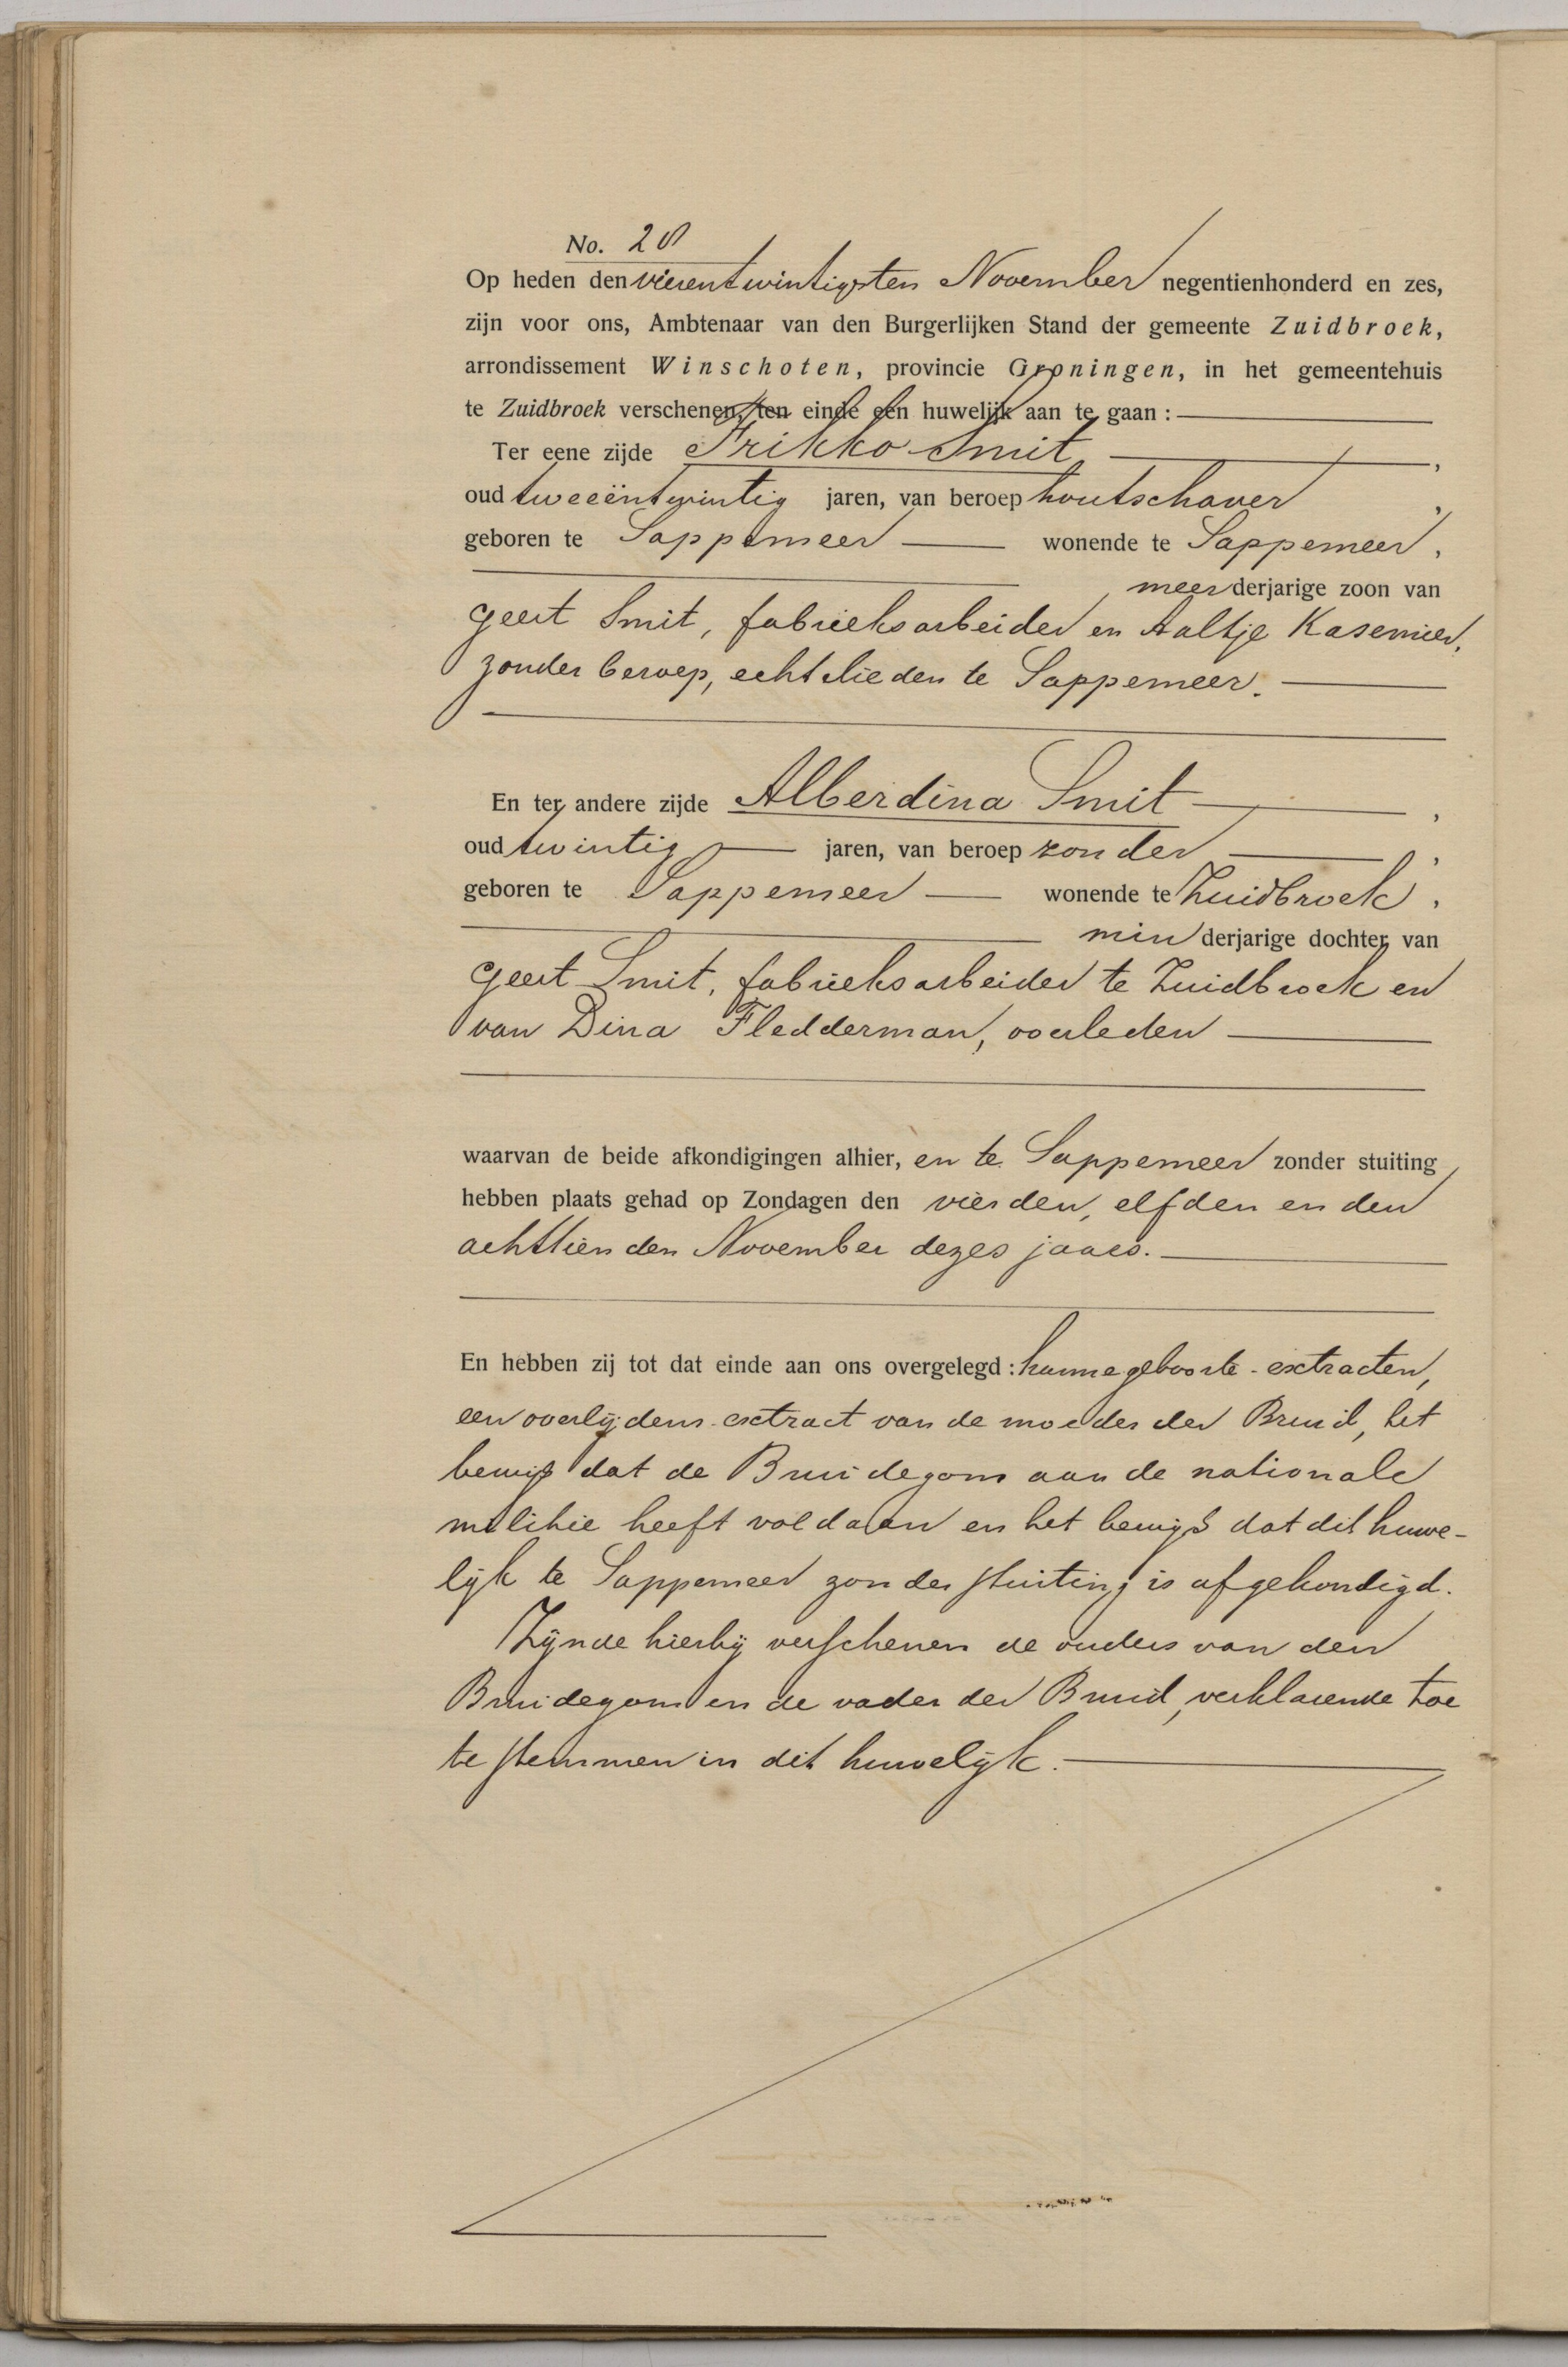 No. 28
Op heden den vierentwintigsten November negentienhonderd en zes,
zijn voor ons, Ambtenaar van den Burgerlijken Stand der gemeente Zuidbroek,
arrondissement Winschoten, provincie Groningen, in het gemeentehuis
te Zuidbroek verschenen, ten einde een huwelijk aan te gaan :
Ter eene zijde Frikko Smit,
oud tweeëntwintig jaren, van beroep houtschaver,
geboren te Sappemeer wonende te Sappemeer,
meerderjarige zoon van
Geert Smit, fabrieksarbeider en Aaltje Kasemier,
zonder beroep, echtelieden te Sappemeer.
En ter andere zijde Alberdina Smit,
oud twintig jaren, van beroep zonder,
geboren te Sappemeer wonende te Zuidbroek,
minderjarige dochter van
Geert Smit, fabrieksarbeider te Zuidbroek en
van Dina Fledderman, overleden
waarvan de beide afkondigingen alhier, en te Sappemeer zonder stuiting
hebben plaats gehad op Zondagen den vierden, elfden en den
achttienden November dezes jaars.
En hebben zij tot dat einde aan ons overgelegd : hunne geboorte-extracten,
een overlijdens-extract van de moeder der Bruid, het
bewijs dat de Bruidegom aan de nationale
militie heeft voldaan en het bewijs dat dit huwe-
lijk te Sappemeer zonder stuiting is afgekondigd.
Zijnde hierbij verschenen de ouders van den
Bruidegom en de vader der Bruid, verklarende toe
te stemmen in dit huwelijk.